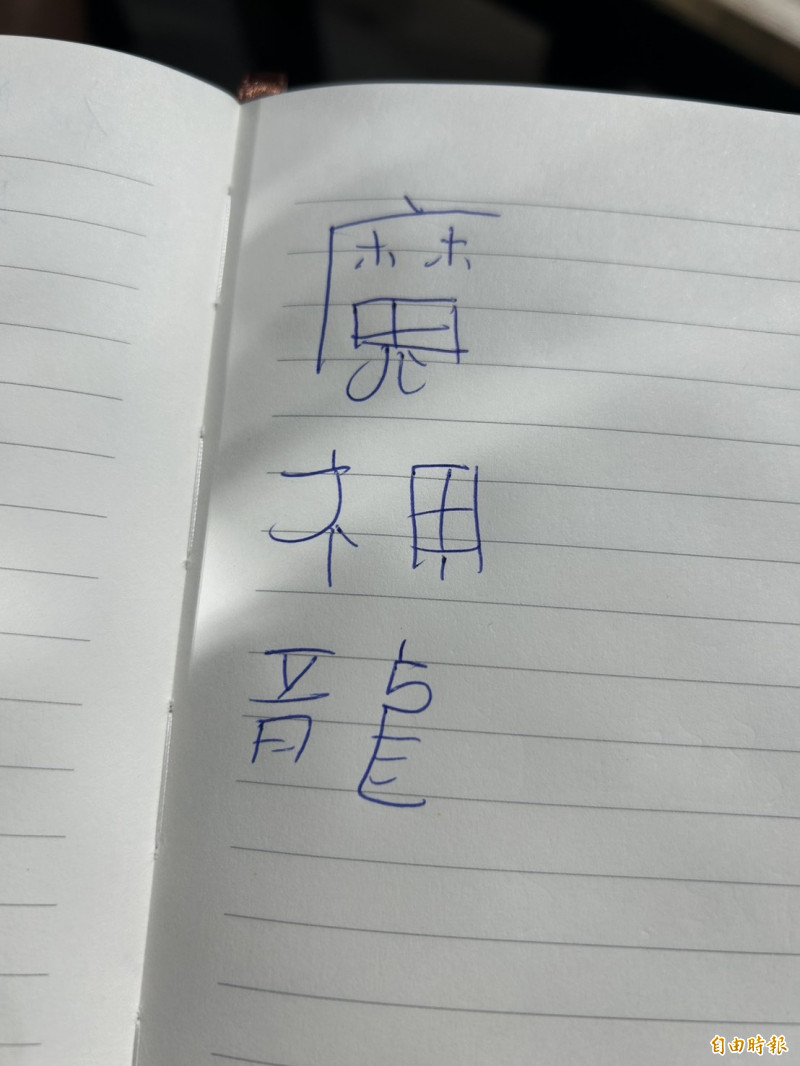 魔
神
龍
自由時報